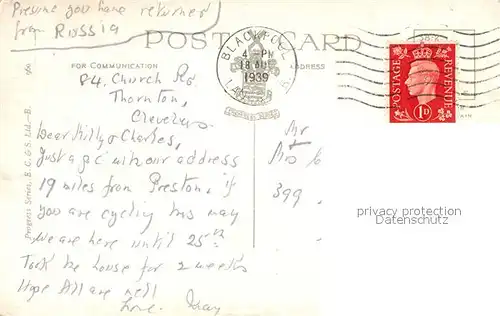 Presume you have returned
from Russia
POST CARD
FOR COMMUNICATION
ADDRESS
BLACKPOOL
4 - PM
18 AU
1939
POSTAGE
REVENUE
1D
84, Church Rd
Thornton,
Cleveleys.
Dear Kitty & Charles,
Just a p.c with our address
19 miles from Preston, if
you are cycling this way
We are here until 25th
Took the house for 2 weeks
Hope All are well
Love.
Mr
+
Mrs
399
Progress Series. B. C. & S. Ltd.—B.
privacy protection
Datenschutz